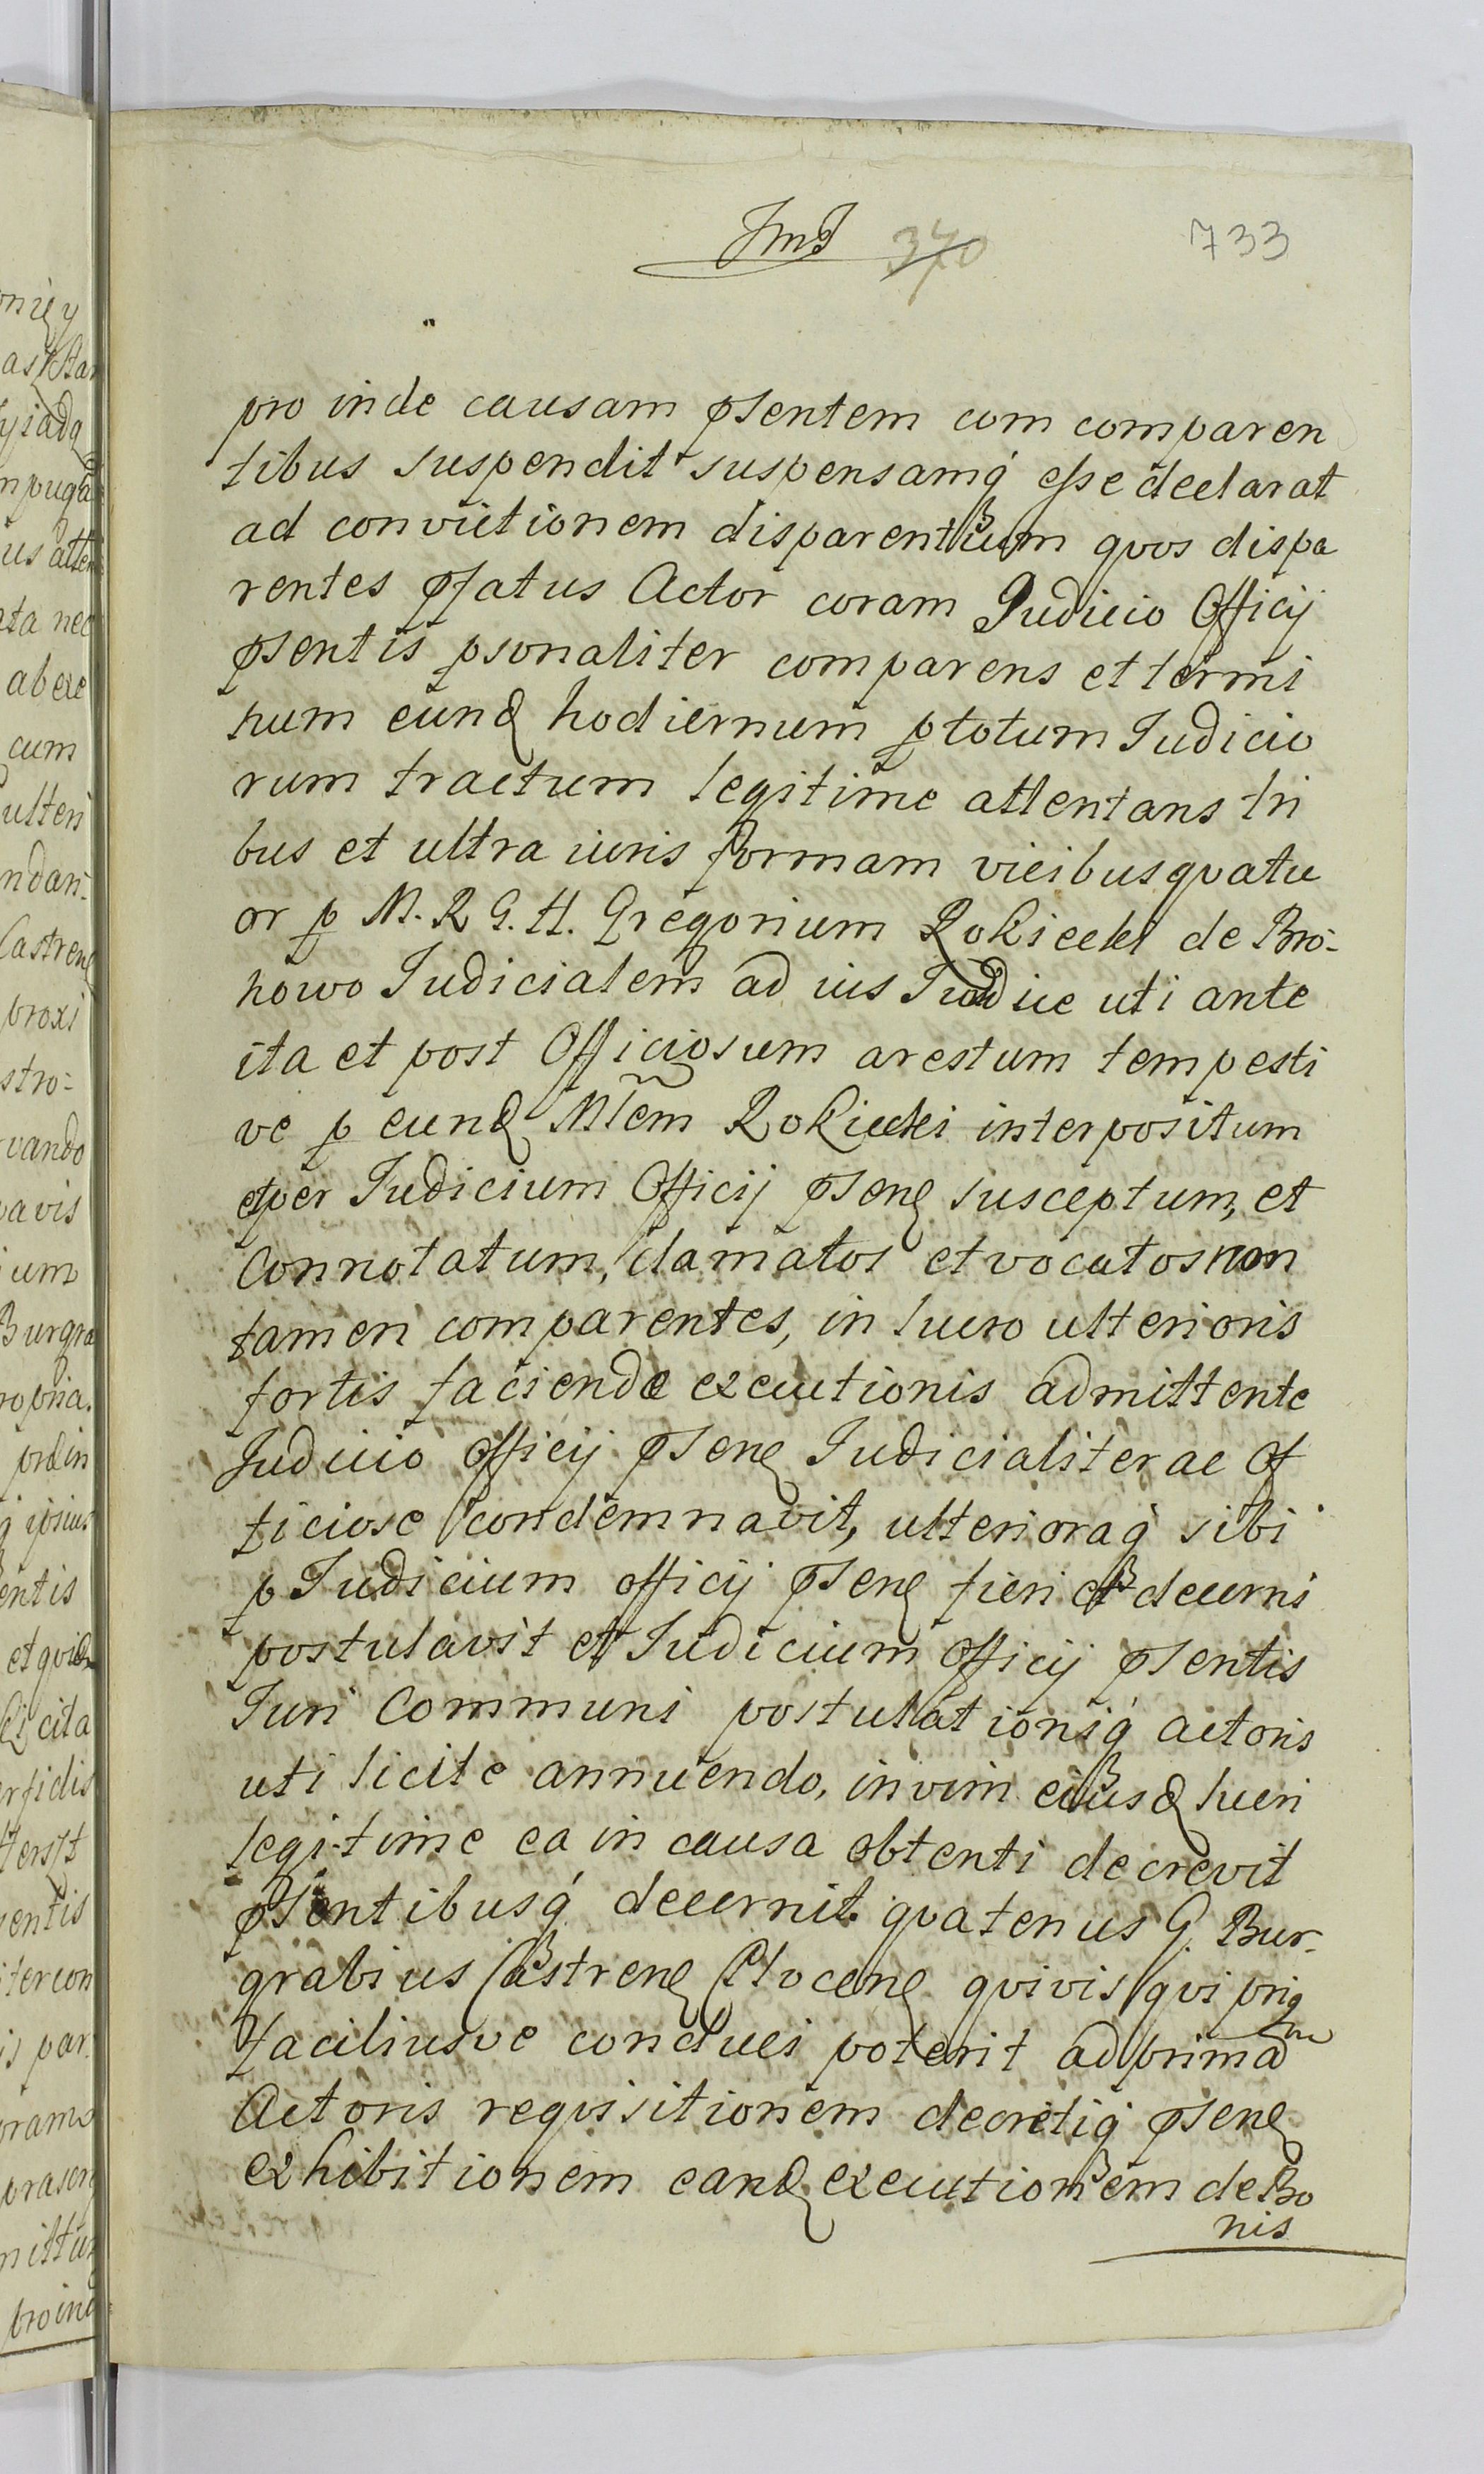 JmJ 370 733
pro inde causam psentem com comparen
tibus suspendit suspensamq́ esse declarat
ad convictionem disparentium qvos dispa
rentes pfatus Actor coram Judicio Officij
psentis psonaliter comparens et termi
num eund hodiernum p totum Judicio
rum tractum legitime attentans tri
bus et ultra iuris formam vicibus qvatu
or p M. R G. H. Gregorium Rokicki de Bro-
howo Judicialem ad ius Judice uti ante
ita et post Officiosum arestum tempesti
ve p eund Mlem Rokicki interpositum
et per Judicium Officij psen susceptum, et
Connotatum, clamatos et vocatos non
tamen comparentes, in lucro ulterioris
fortis faciendæ executionis admittente
Judicio officij psen Judicialiter ac Of
ficiose condemnavit, ulterioraq́ sibi
p Judicium officij psen fieri et decerni
postulavit et Judicium Officij psentis
Juri Communi postulationiq́ actoris
uti licite annuendo, in vim eiusd lucri
legitime ea in causa obtenti decrevit
psentibusq́ decernit. qvatenus G. Bur-
grabius Castren Plocen qvivis qvi prius
faciliusve conduci poterit ad primam
Actoris reqvisitionem decretiq́ psen
exhibitionem eand executionem de Bo
nis